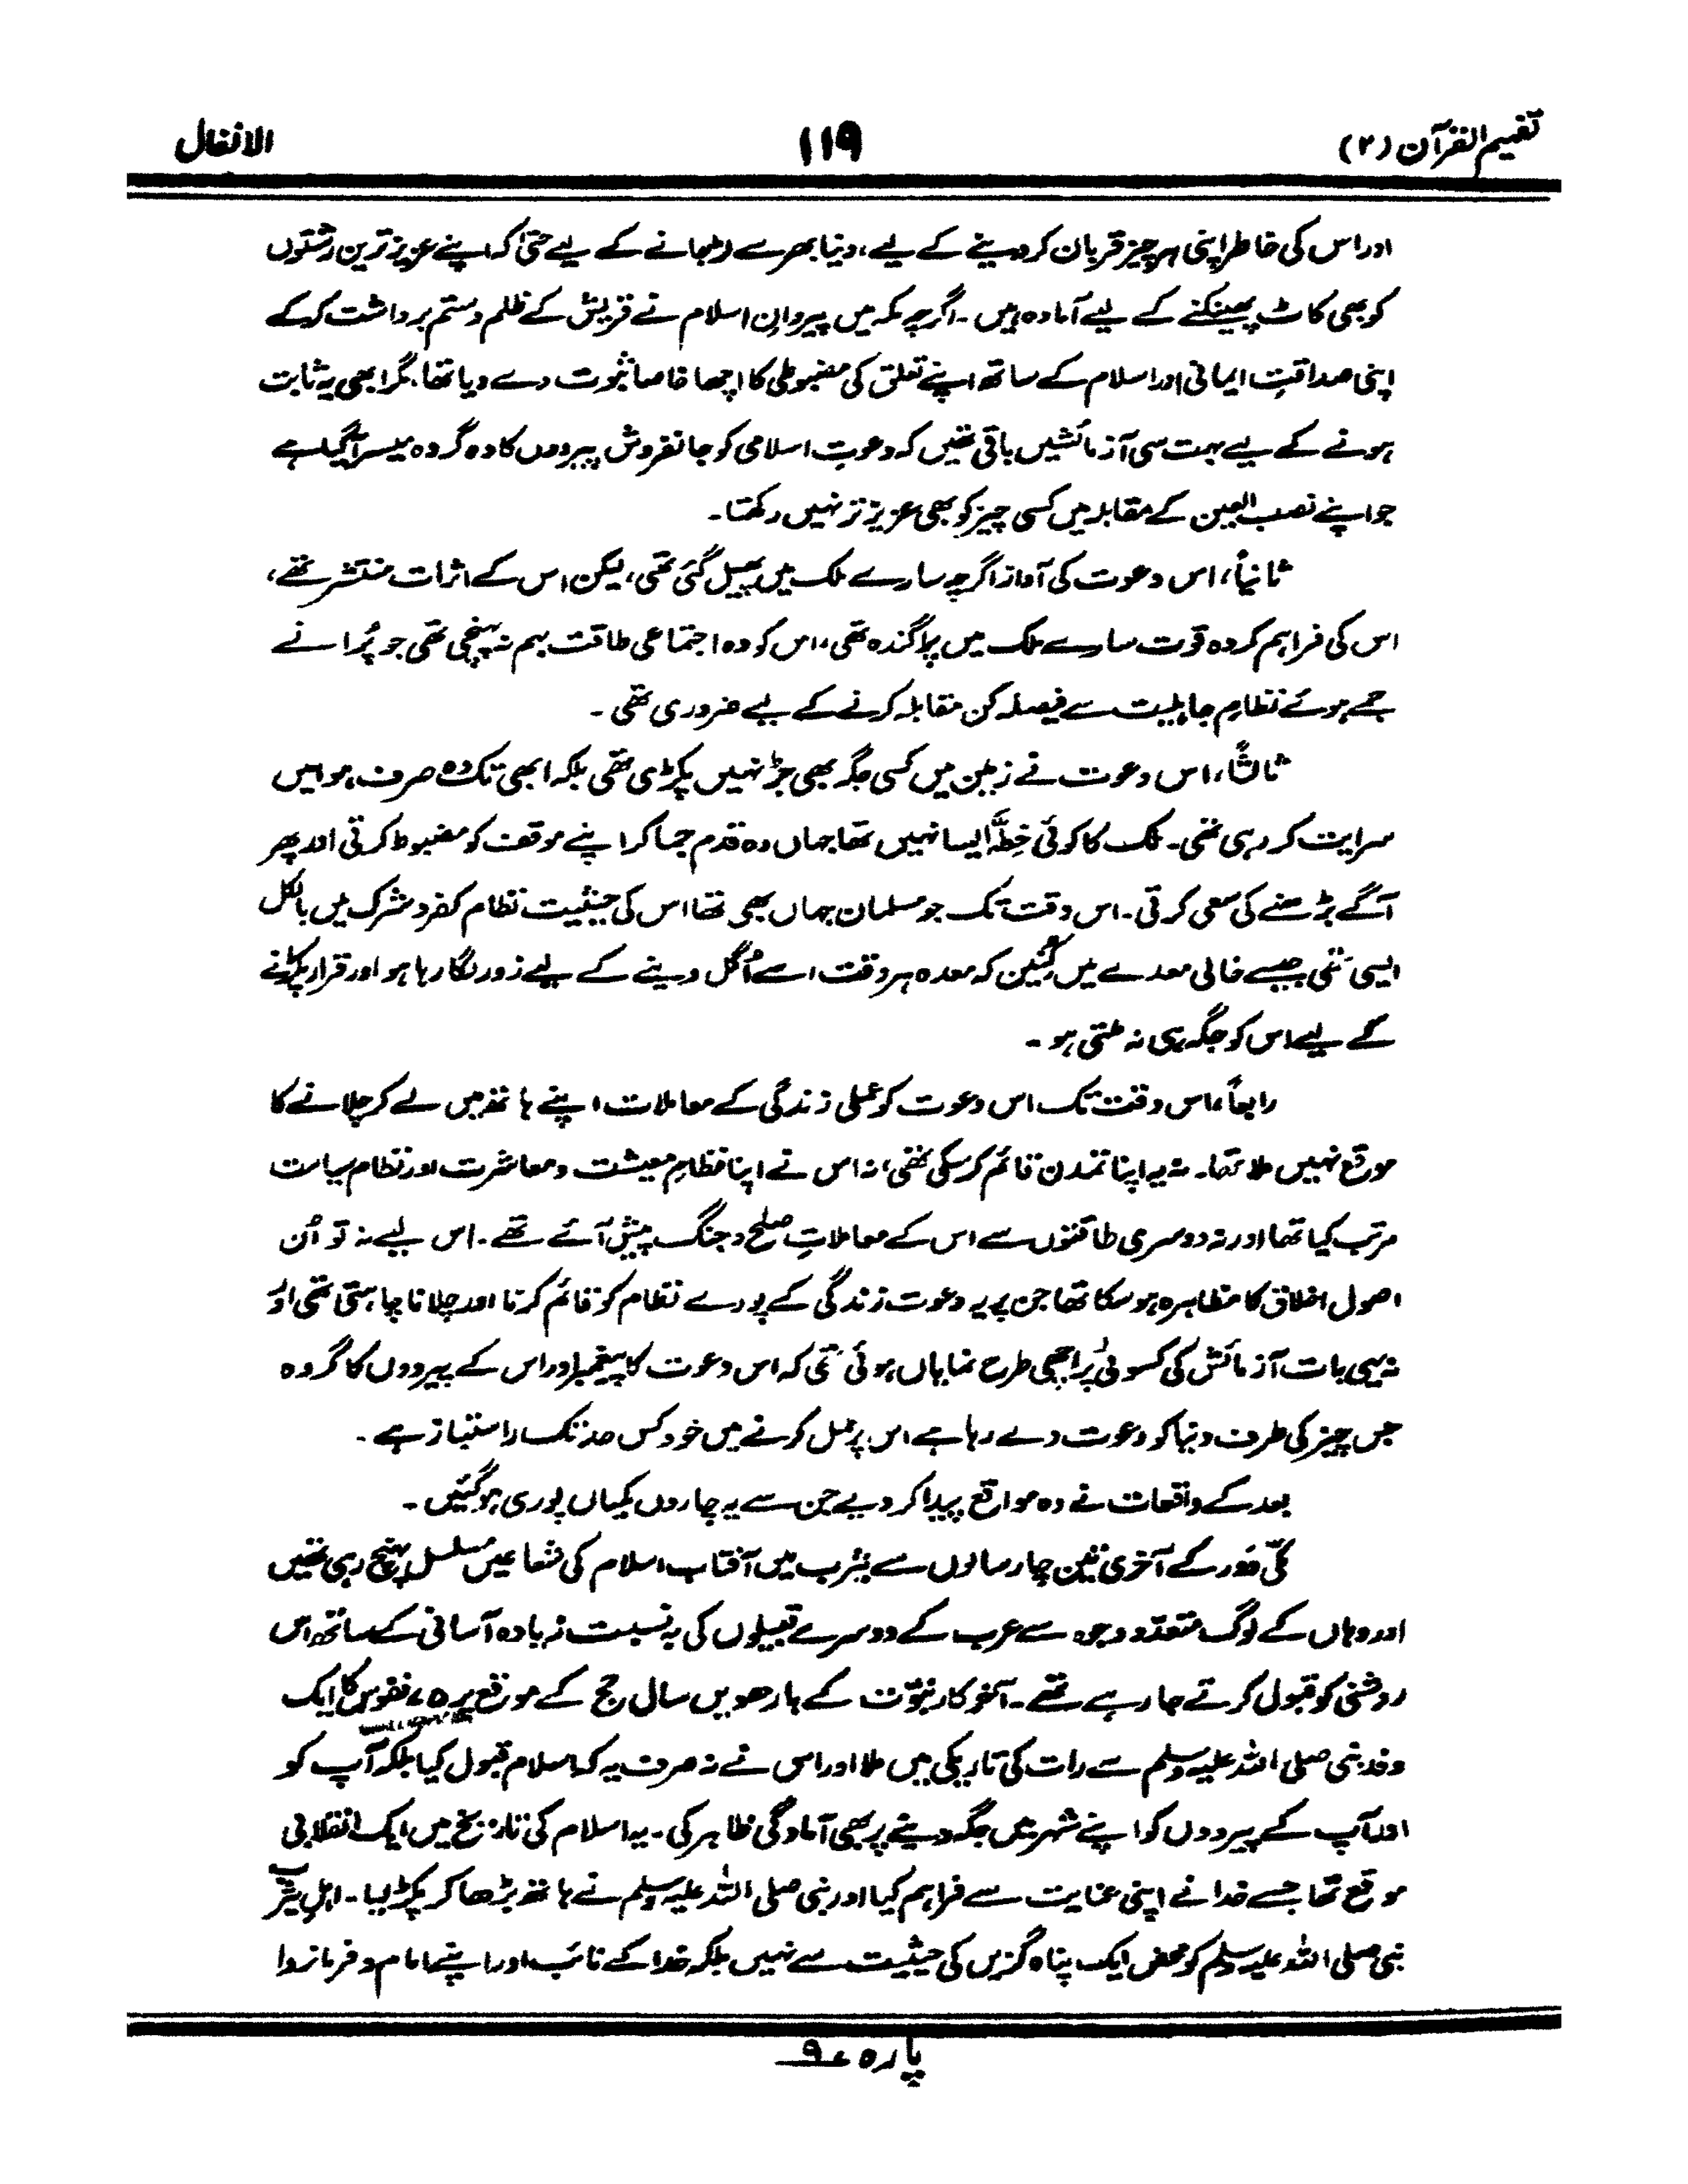 تفہیم القرآن (۲)
۱۱۹
الانفال
اور اس کی خاطر اپنی ہر چیز قربان کر دینے کے لیے، دنیا بھر سے لڑجانے کے لیے حتیٰ کہ اپنے عزیز ترین رشتوں
کو بھی کاٹ پھینکنے کے لیے آمادہ ہیں۔ اگرچہ مکہ میں پیروانِ اسلام نے قریش کے ظلم و ستم برداشت کر کے
اپنی صداقتِ ایمانی اور اسلام کے ساتھ اپنے تعلق کی مضبوطی کا اچھا خاصا ثبوت دے دیا تھا، مگر ابھی یہ ثابت
ہونے کے لیے بہت سی آزمائشیں باقی تھیں کہ دعوتِ اسلامی کو جانفروش پیرووں کا وہ گروہ میسر آگیا ہے
جو اپنے نصب العین کے مقابلہ میں کسی چیز کو بھی عزیز تر نہیں رکھتا۔
ثانیاً، اس دعوت کی آواز اگرچہ سارے ملک میں پھیل گئی تھی، لیکن اس کے اثرات منتشر تھے،
اس کی فراہم کردہ قوت سارے ملک میں پراگندہ تھی، اس کو وہ اجتماعی طاقت بہم نہ پہنچی تھی جو پُرانے
جمے ہوئے نظامِ جاہلیت سے فیصلہ کن مقابلہ کرنے کے لیے ضروری تھی۔
ثالثاً، اس دعوت نے زمین میں کسی جگہ بھی جڑ نہیں پکڑی تھی بلکہ ابھی تک وہ صرف ہوا میں
سرایت کر رہی تھی۔ ملک کا کوئی خِطّہ ایسا نہیں تھا جہاں وہ قدم جما کر اپنے موقف کو مضبوط کرتی اور پھر
آگے بڑھنے کی سعی کرتی۔ اس وقت تک جو مسلمان جہاں بھی تھا اس کی حیثیت نظام کفر و شرک میں بالکل
ایسی تھی جیسے خالی معدے میں کُنین کہ معدہ ہر وقت اسے اُگل دینے کے لیے زور لگا رہا ہو اور قرار پکڑنے
کے لیے اس کو جگہ ہی نہ ملتی ہو۔
رابعاً، اس وقت تک اس دعوت کو عملی زندگی کے معاملات اپنے ہاتھ میں لے کر چلانے کا
موقع نہیں ملا تھا۔ نہ یہ اپنا تمدن قائم کر سکی تھی، نہ اس نے اپنا نظامِ معیشت و معاشرت اور نظام سیاست
مرتب کیا تھا اور نہ دوسری طاقتوں سے اس کے معاملاتِ صلح و جنگ پیش آئے تھے۔ اس لیے نہ تو اُن
اصول اخلاق کا مظاہرہ ہو سکا تھا جن پر یہ دعوت زندگی کے پورے نظام کو قائم کرنا اور چلانا چاہتی تھی اور
نہ یہی بات آزمائش کی کسوٹی پر اچھی طرح نمایاں ہوئی تھی کہ اس دعوت کا پیغمبر اور اس کے پیرووں کا گروہ
جس چیز کی طرف دنیا کو دعوت دے رہا ہے اس پر عمل کرنے میں خود کس حد تک راستباز ہے۔
بعد کے واقعات نے وہ مواقع پیدا کر دیے جن سے یہ چاروں کمیاں پوری ہو گئیں۔
مکی دَور کے آخری تین چار سالوں سے یثرب میں آفتاب اسلام کی شعاعیں مسلسل پہنچ رہی تھیں
اور وہاں کے لوگ متعدّد وجوہ سے عرب کے دوسرے قبیلوں کی بہ نسبت زیادہ آسانی کے ساتھ اس
روشنی کو قبول کرتے جا رہے تھے۔ آخر کار نبوّت کے بارھویں سال حج کے موقع پر ۷۵ نفوس کا ایک
وفد نبی صلی اللہ علیہ وسلم سے رات کی تاریکی میں ملا اور اس نے نہ صرف یہ کہ اسلام قبول کیا بلکہ آپ کو
اور آپ کے پیرووں کو اپنے شہر میں جگہ دینے پر بھی آمادگی ظاہر کی۔ یہ اسلام کی تاریخ میں ایک انقلابی
موقع تھا جسے خدا نے اپنی عنایت سے فراہم کیا اور نبی صلی اللہ علیہ وسلم نے ہاتھ بڑھا کر پکڑ لیا۔ اہلِ یثرب
نبی صلی اللہ علیہ وسلم کو محض ایک پناہ گزیں کی حیثیت سے نہیں بلکہ خدا کے نائب اور اپنے امام و فرمانروا
پارہ ۹